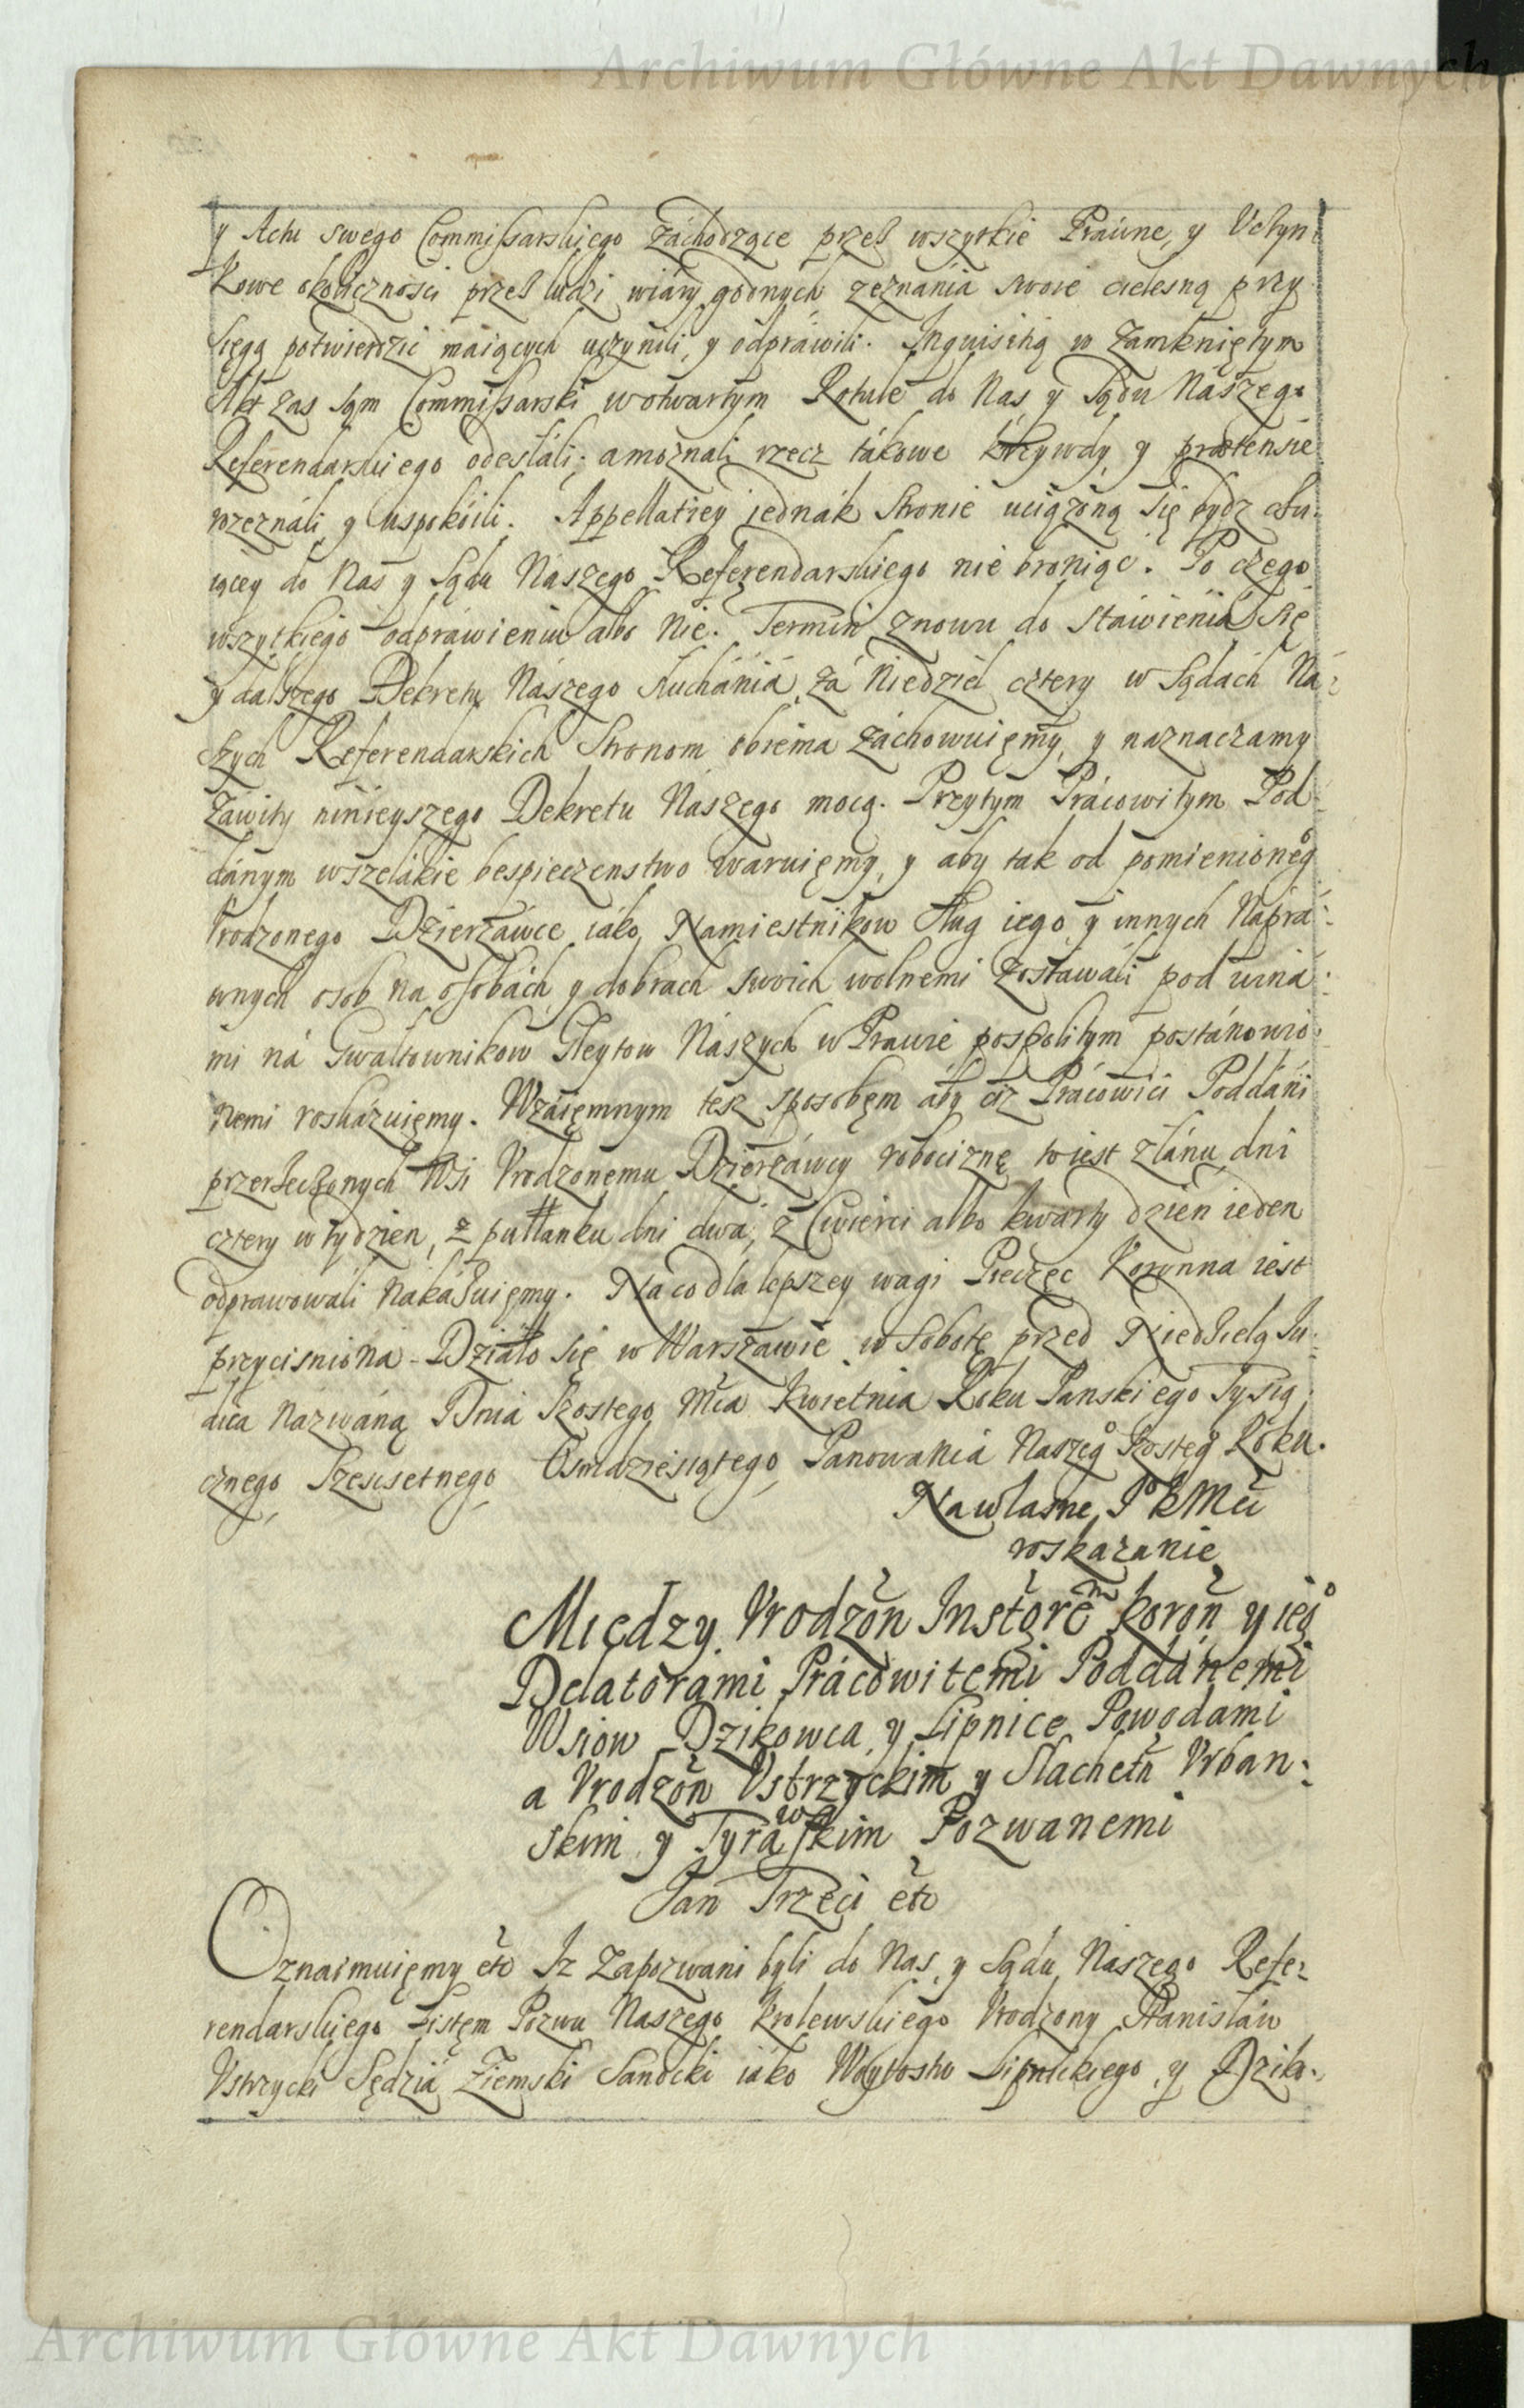 Archiwum Główne Akt Dawnych
y Actu swego Commissarskiego záchodzące przes wszytkie Práwne, y Uczyn
kowe okolicznosci przes ludzi wiáry godnych zeznánia swoie cielesną przy
sięgą potwierdzic máiących uczynili, y odpráwili. Inquisitią w zamkniętym
Akt zas sąm Commissarski w otwartym Rotule do Nas y Sądu Nászego
Referendarskiego odesłáli; a możnali rzecz tákowe krzywdy, y praetensie
rozeználi y uspokóili. Appellatiey iednák stronie uciązoną się bydz
iącey do Nas y Sądu Nászego Referendarskiego nie broniąc. Po czego
wszytkiego odpráwieniu albo Nie. Termin znowu do stáwieniá się
y dalszego Dekretu Nászego słuchániá zá Niedziel cztery w Sądách Ná-
szych Referendarskich Stronom obiema záchowuięmy, y naznaczamy
záwity ninieyszego Dekretu Nászego mocą. Przytym Prácowitym Pod-
dánym wszelákie bespieczenstwo waruięmy, y aby tak od pomienioneg̊
Vrodzonego Dzierzáwce iáko Namiestnikow sług iego y innych Náprá-
wnych osob na osobách y dobrach swoich wolnemi zostawáli pod winá-
mi ná Gwałtownikow Gleytow Nászych w Prawie pospolitym postánowio-
nemi roskázuięmy. Wzáięmnym tesz sposobęm áby ciz Prácowici Poddáni
przerzeczonych Wsi Vrodzonemu Dzierzáwcy robociznę to iest z łánu dni
cztery w tydzien, z pułłanku dni dwá, z Cwierci albo kwárty dzien ieden
odprawowáli nakázuięmy. Ná co dla lepszey wagi Pieczęc Koronna iest
przycisnioná. Działo się w Warszáwie w Sobotę przed Niedzielą Iu-
dica názwáną Dniá Szostego Mca Kwietnia Roku Panskiego Tysią
cznego Szescsetnego Osmdziesiątego, Panowaniá Naszeg̊ Szosteg̊ Roku.
Na własne JKMci
roskazanie
Między Vrodzon Instgorem Koron y ieg̊
Delatorámi Prácowitemi Poddánemi
Wsiow Dzikowca y Lipnice Powodami
a Vrodzon Vstrzyckim y Slachetn Vrban-
skim y Tyráwskim Pozwanemi
Jan Trzeci etc
Oznaimuięmy etc Iz zapozwani byli do Nas, y Sądu Nászego Refe-
rendarskiego Listęm Pozwu Nászego Krolewskiego Vrodzony Stanisláw
Vstrzycki Sędziá Ziemski Sanocki iáko Woytostw Lipnickiego, y Dziko-
Archiwum Główne Akt Dawnych